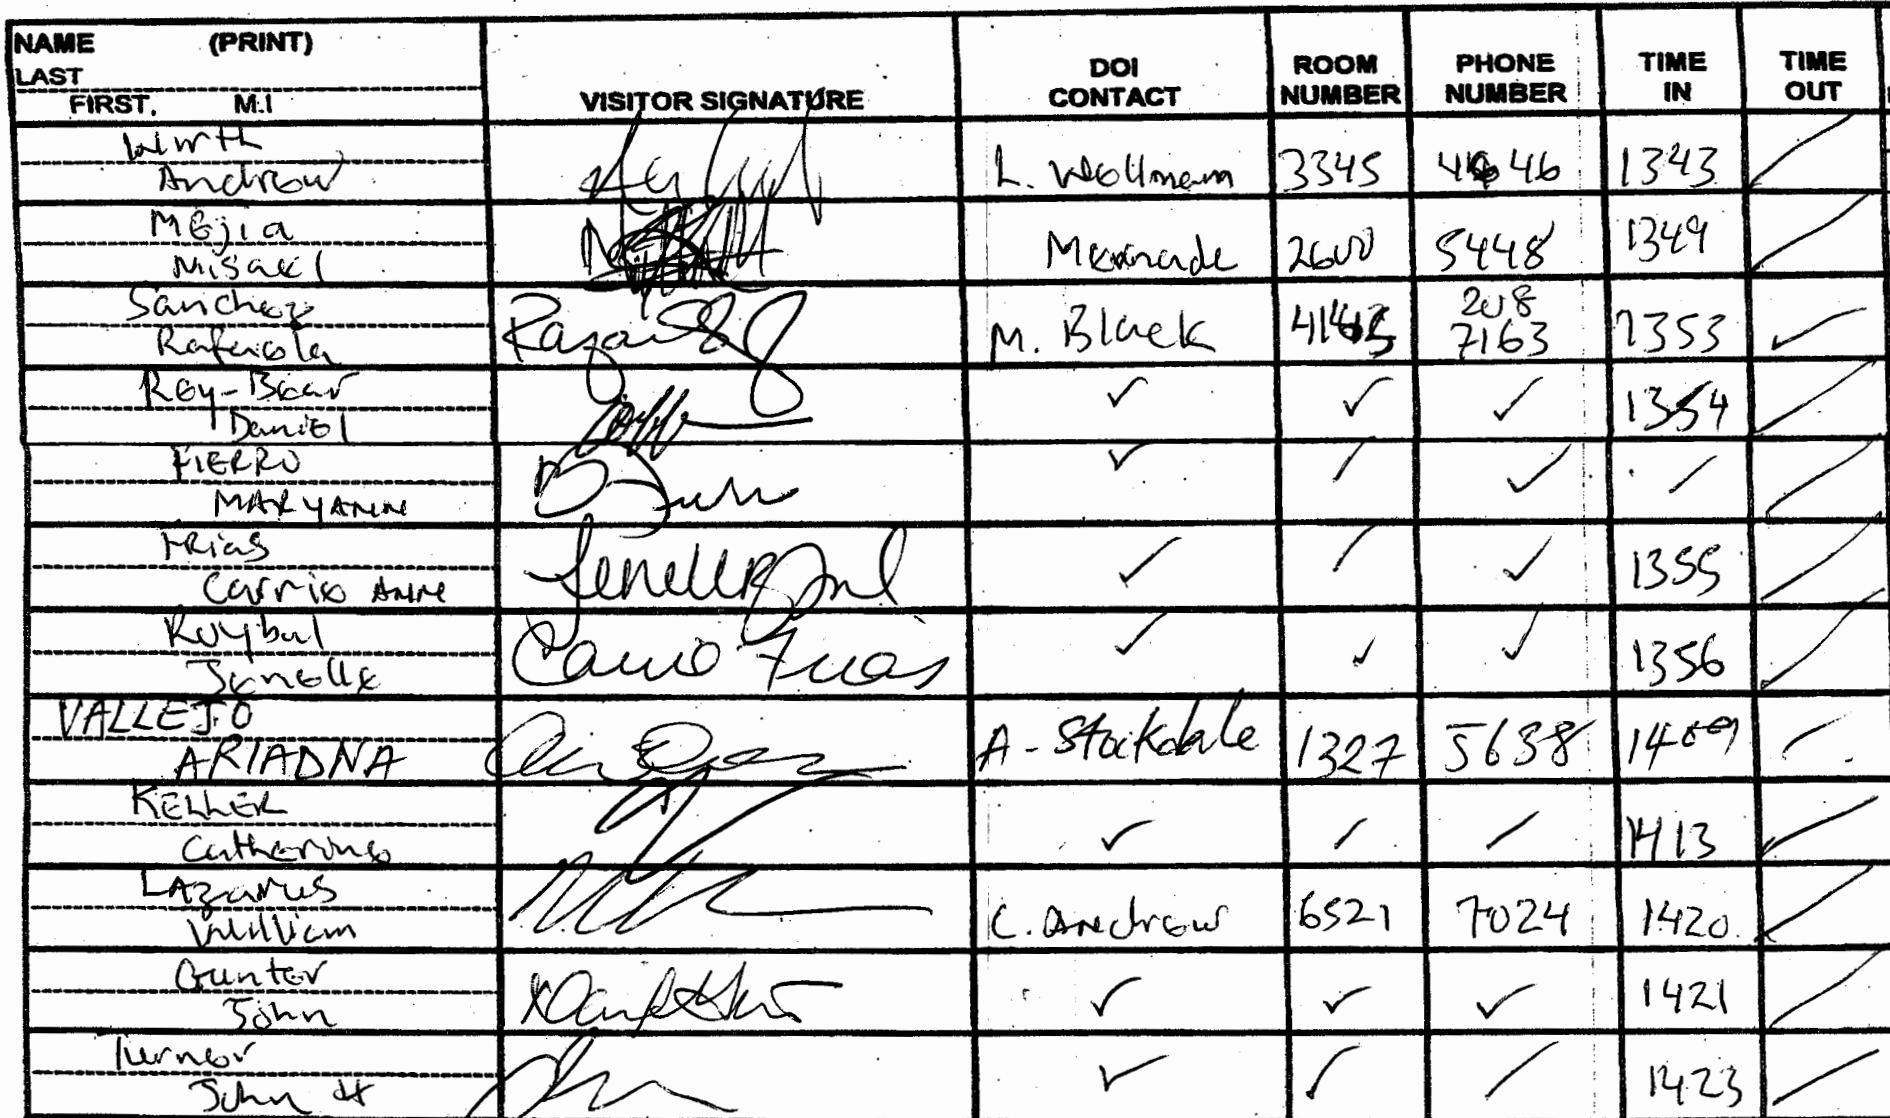 NAME (PRINT)
LAST
FIRST, M.I
VISITOR SIGNATURE
DOI CONTACT
ROOM NUMBER
PHONE NUMBER
TIME IN
TIME OUT
Wirth
Andrew L. Wollmann 3345 46 1343
Mejia
Misael 2600 5448 1349
Sanchez 208
Rafaela M. Black 7163 1353 ✓
Roy-Bear ✓ ✓ ✓ 1354
Daniel
FIERRO ✓ / ✓ /
MARYANN
Frias
Carrie ANNE Jenelle Roybal ✓ / ✓ 1355
Roybal
Jenelle Carrie Frias ✓ ✓ ✓ 1356
VALLEJO
ARIADNA A - Stockdale 1327 5638 1409
KELLER
Catherine ✓ / / 1413
LAzarus
William C. Andrew 6521 7024 1420
Gunter
John ✓ ✓ ✓ 1421
Turner
John H ✓ / / 1423